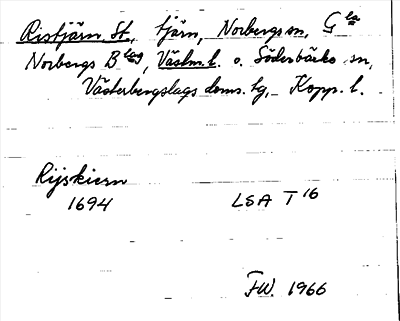 Ristjärn, St., tjärn, Norbergs sn, G la
Norbergs B lag, Västm. l. o. Söderbärke sn,
Västerbergslags doms. tg, Kopp. l.
Rijskiern
1694 LSA T 16
FW. 1966